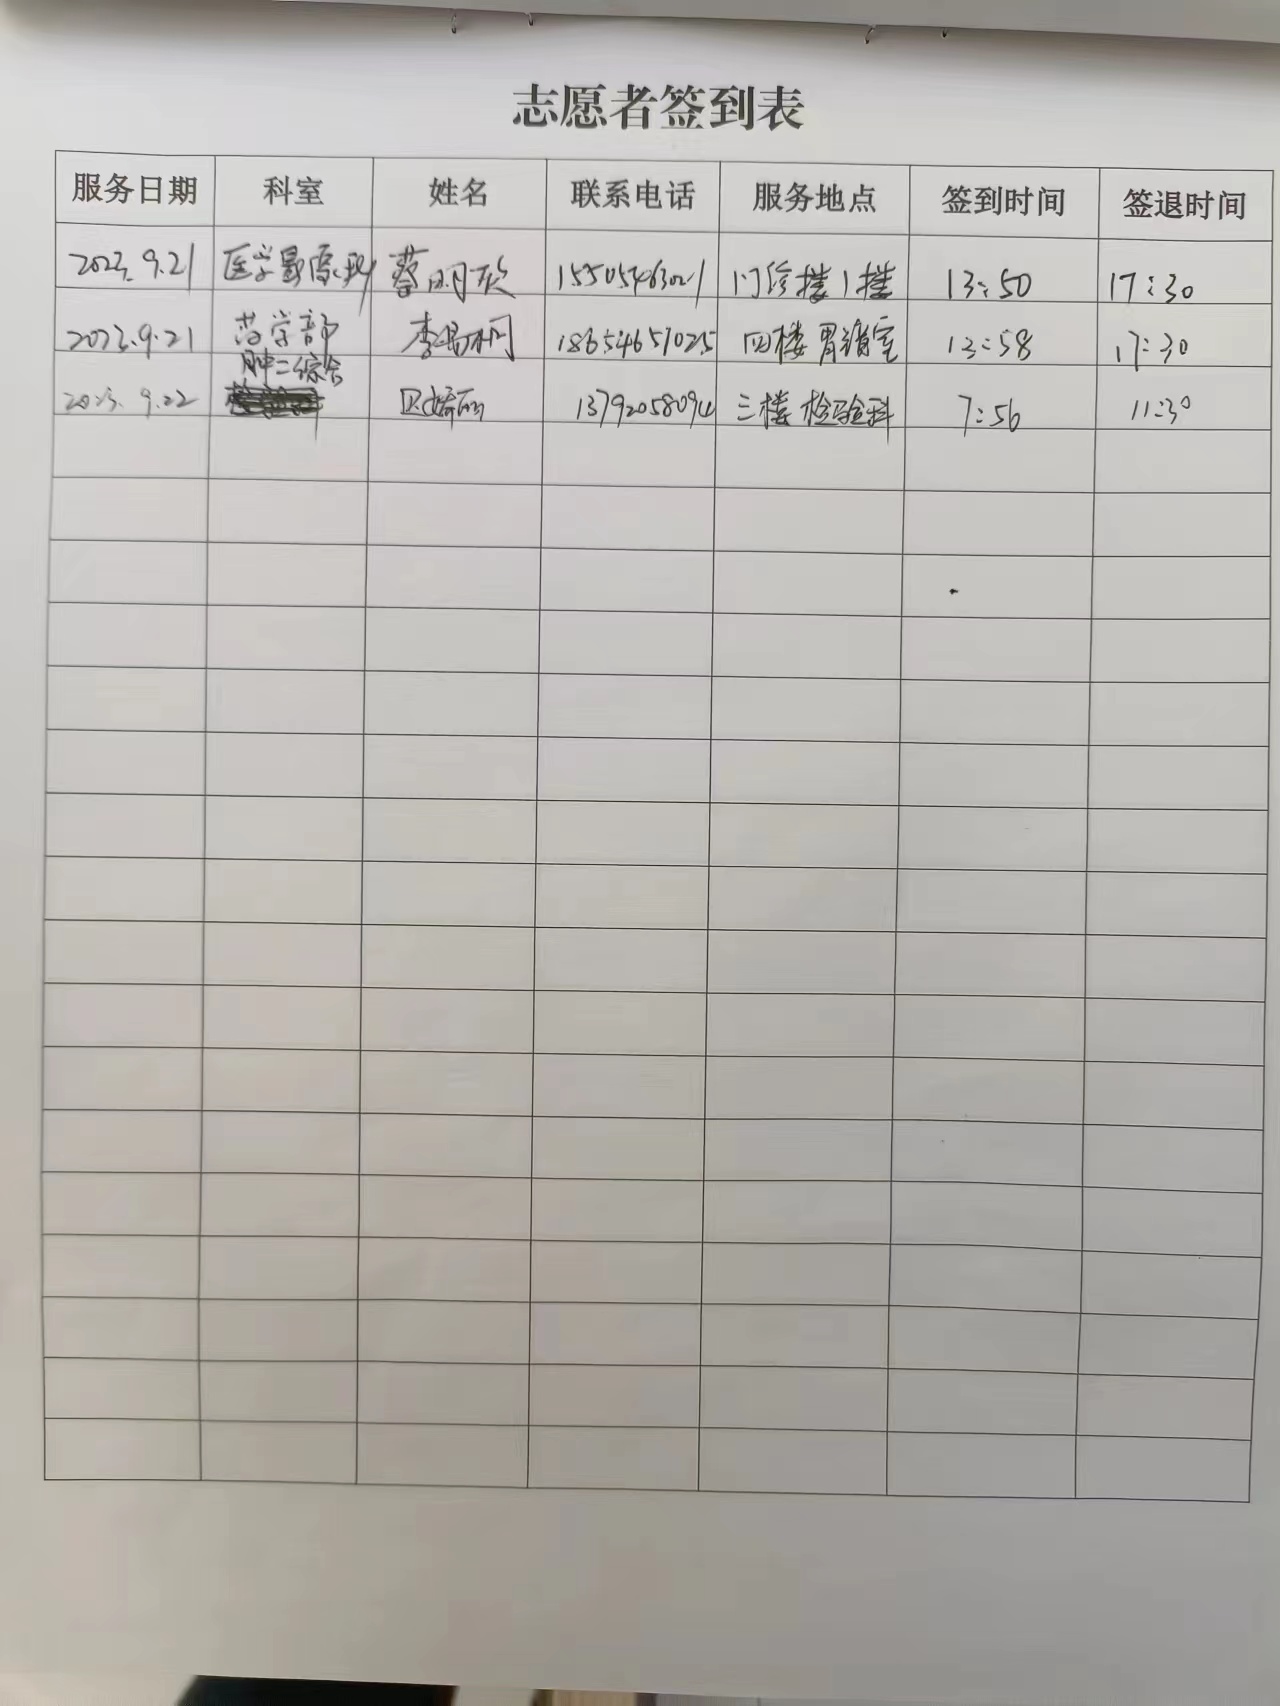 志愿者签到表
服务日期 科室 姓名 联系电话 服务地点 签到时间 签退时间
2023.9.21 医学影像科 蔡明欣 15505463021 门诊楼1楼 13:50 17:30
2023.9.21 药学部 李易桐 18654651025 四楼胃镜室 13:58 17:30
肿二综合
2023.9.22 13792058094 三楼检验科 7:56 11:30